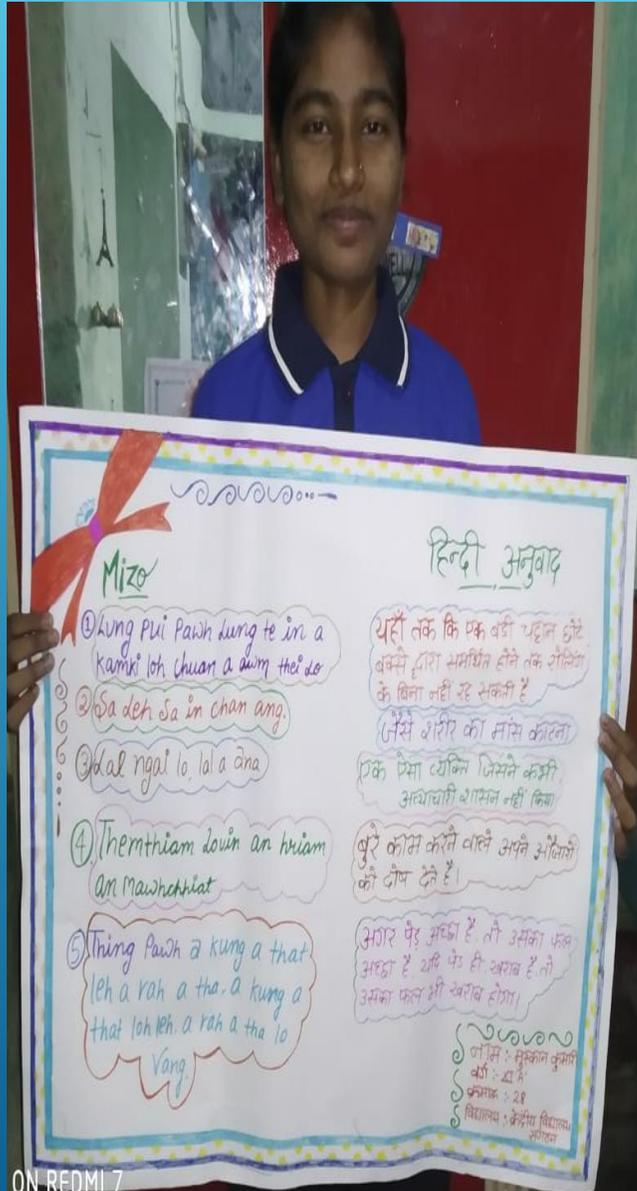 Mizo
① Lung pui Pawh Lung te in a
Kamki loh Chuan a awm thei Lo
② Sa leh Sa in chan ang.
③ Lal ngai lo, lal a āna
④ Themthiam Louin an hriam
an Mawhchhiat
⑤ Thing Pawh a kung a that
leh a rah a tha. a kung a
that loh leh. a rah a tha lo
Vang.
हिन्दी अनुवाद
यहाँ तक कि एक बडी चट्टान छोटे
बक्से द्वारा समर्थित होने तक रोलिंग
के बिना नहीं रह सकती है
जैसे शरीर का मांस काटना
एक ऐसा व्यक्ति जिसने कभी
अत्याचारी शासन नहीं किया
बुरे काम करने वाले अपने औजारों
को दोष देते है।
अगर पेड़ अच्छा है, तो उसका फल
अच्छा है, यदि पेड ही खराब है, तो
उसका फल भी खराब होगा।
नाम :- मुस्कान कुमारी
वर्ग :-
क्रमांक :- 28
विद्यालय : केंद्रीय विद्यालय
संगठन
ON REDMI 7